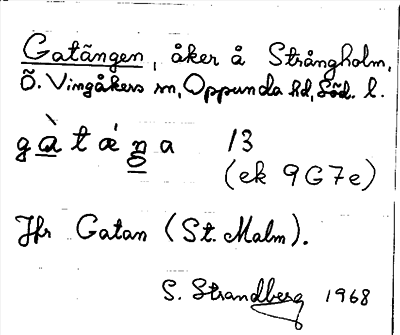 Gatängen, åker å Strångholm,
Ö. Vingåkers sn, Oppunda hd, Söd. l.
gàtæ´ŋa 13
(ek 9G7e)
Jfr Gatan (St. Malm).
S. Strandberg 1968